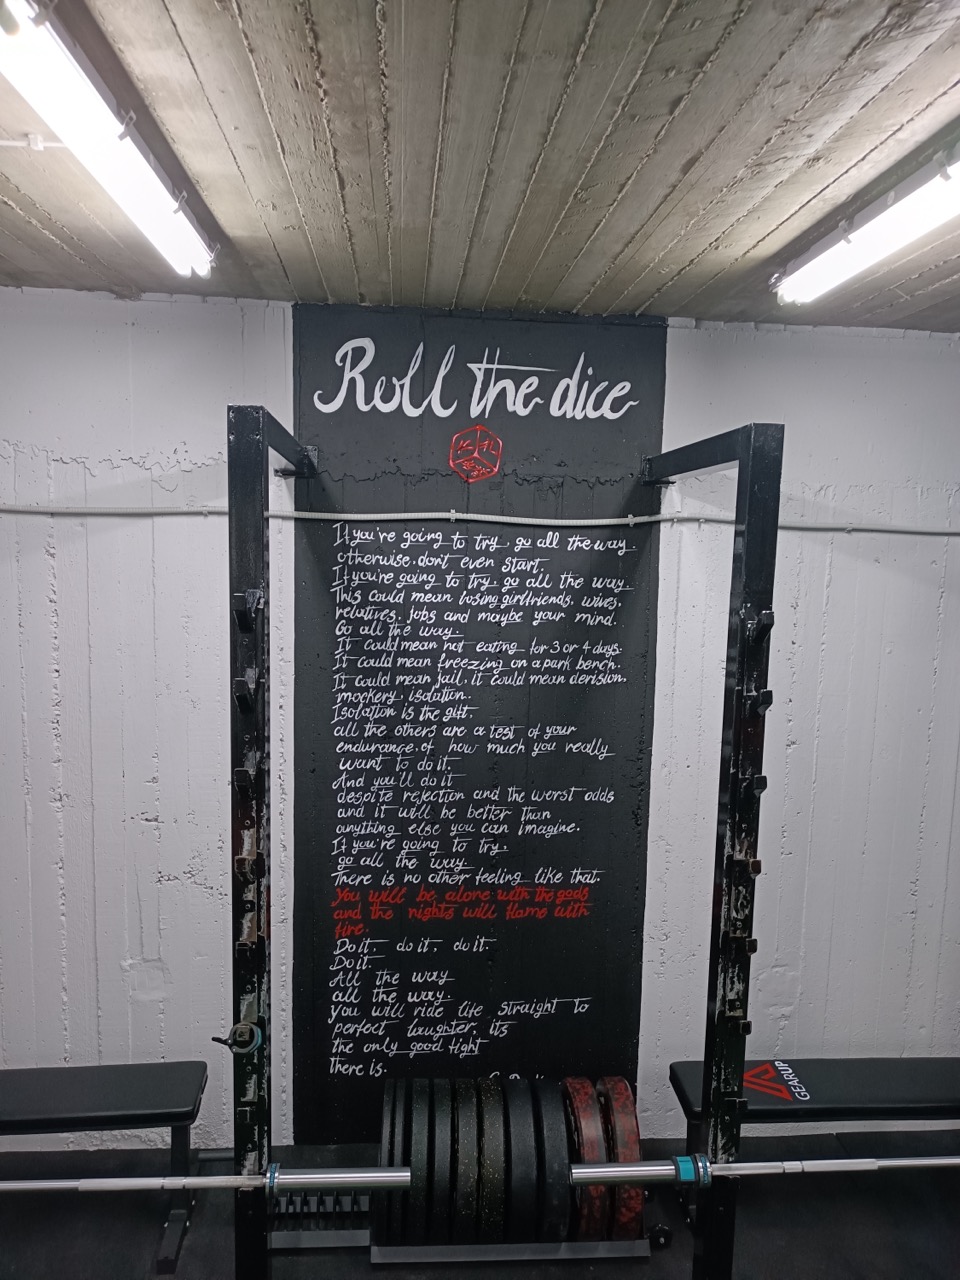 Roll the dice
If you're going to try, go all the way.
otherwise, don't even start.
If you're going to try, go all the way.
This could mean losing girlfriends, wives,
relatives, jobs and maybe your mind.
Go all the way.
It could mean not eating for 3 or 4 days.
It could mean freezing on a park bench.
It could mean jail, it could mean derision,
mockery, isolation.
Isolation is the gift,
all the others are a test of your
endurance, of how much you really
want to do it.
And you'll do it
despite rejection and the worst odds
and it will be better than
anything else you can imagine.
If you're going to try,
go all the way.
There is no other feeling like that.
You will be alone with the gods
and the nights will flame with
fire.
Do it, do it, do it.
Do it.
All the way
all the way.
you will ride life straight to
perfect laughter, its
the only good fight
there is.
GEARUP